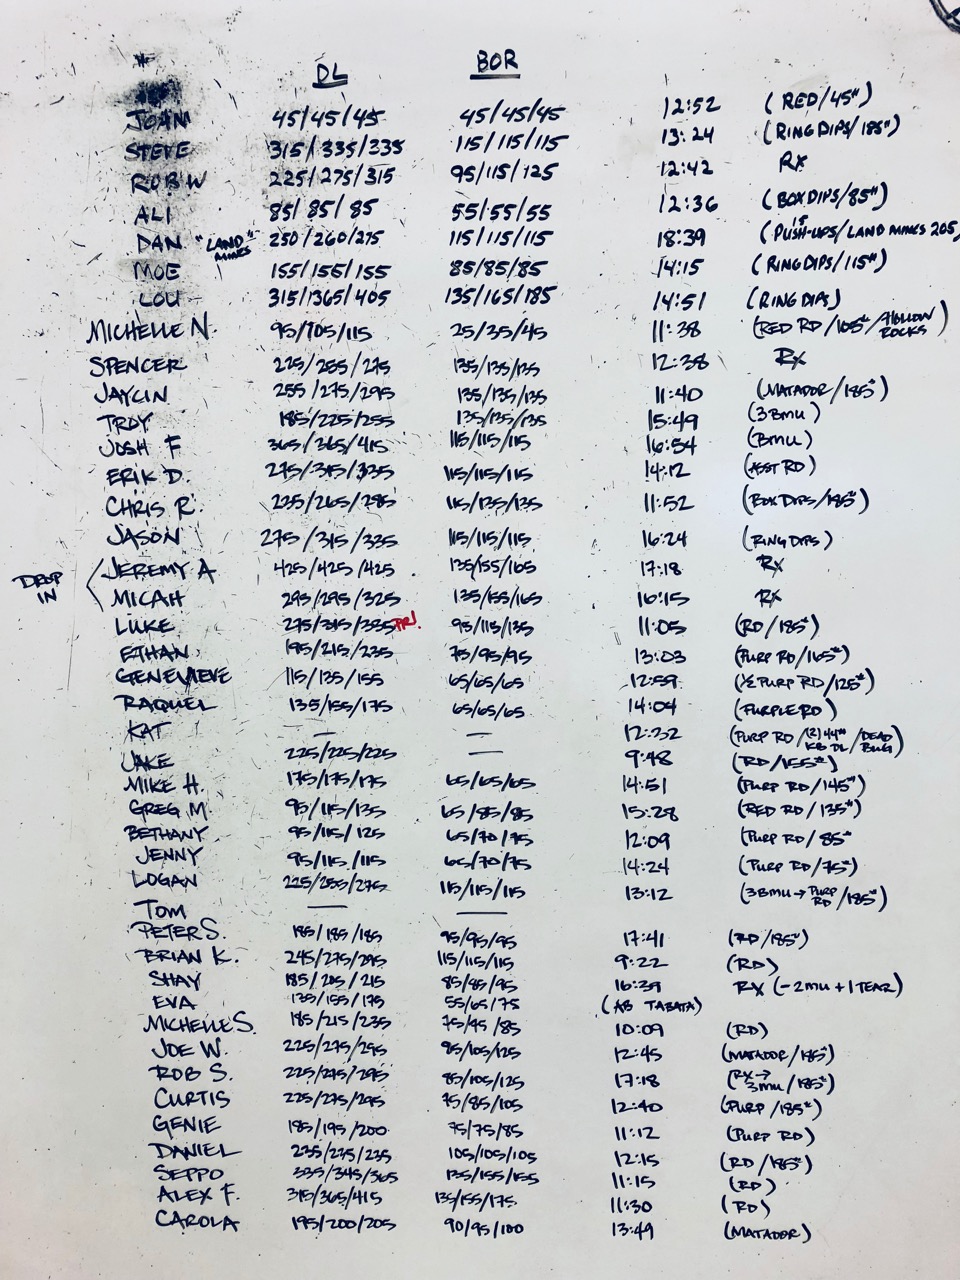 DL BOR
JOAN 45/45/45 45/45/45 12:52 (RED/45#)
STEVE 315/335/335 115/115/115 13:24 (RING DIPS/185#)
ROB W 225/275/315 95/115/125 12:42 RX
ALI 85/85/85 55/55/55 12:36 (BOX DIPS/85#)
DAN "LAND MINES" 250/260/275 115/115/115 18:39 (PUSH-UPS/LAND MINES 205
MOE 155/155/155 85/85/85 14:15 (RING DIPS/115#)
LOU 315/365/405 135/165/185 14:51 (RING DIPS)
MICHELLE N. 95/105/115 25/35/45 11:38 (RED RD/105#/HOLLOW ROCKS)
SPENCER 225/255/275 135/135/135 12:38 RX
JAYCIN 255/275/295 135/135/135 11:40 (MATADOR/185#)
TROY 185/225/255 135/135/135 15:49 (3BMU)
JOSH F 365/365/415 115/115/115 16:54 (BMU)
ERIK D. 275/315/335 115/115/115 14:12 (ASST RD)
CHRIS R. 235/265/285 115/135/135 11:52 (BOX DIPS/185#)
JASON 275/315/335 115/115/115 16:24 (RING DIPS)
DROP IN
JEREMY A 425/425/425 135/155/165 17:18 RX
MICAH 295/295/325 135/155/165 16:15 RX
LUKE 275/315/335 PR! 95/115/135 11:05 (RD/185#)
ETHAN 195/215/235 75/95/95 13:03 (PURP RD/165#)
GENEVIEVE 115/135/155 65/65/65 12:59 (½ PURP RD/125#)
RAQUEL 135/155/175 65/65/65 14:04 (PURPLE RD)
KAT — — 12:32 (PURP RD/(2) 44# KB DL/DEAD BUG)
JAKE 225/225/225 — 9:48 (RD/155#)
MIKE H. 175/175/175 65/65/65 14:51 (PURP RD/145#)
GREG M. 95/115/135 65/85/85 15:28 (RED RD/135#)
BETHANY 95/115/125 65/70/75 12:09 (PURP RD/85#
JENNY 95/115/115 65/70/75 14:24 (PURP RD/75#)
LOGAN 225/255/275 115/115/115 13:12 (3BMU→PURP RD/185#)
TOM — —
PETER S. 185/185/185 95/95/95 17:41 (RD/185#)
BRIAN K. 245/275/295 115/115/115 9:22 (RD)
SHAY 185/205/215 85/95/95 16:39 RX (-2MU+1 TEAR)
EVA 135/155/175 55/65/75 (AB TABATA)
MICHELLE S. 185/215/235 75/95/85 10:09 (RD)
JOE W. 225/275/295 95/105/125 12:45 (MATADOR/185#)
ROB S. 225/275/295 85/105/125 17:18 (RX→3MU/185#)
CURTIS 225/275/295 75/85/105 12:40 (PURP/185#)
GENIE 185/195/200 75/75/85 11:12 (PURP RD)
DANIEL 235/235/235 105/105/105 12:15 (RD/185#)
SEPPO 335/345/365 135/155/155 11:15 (RD)
ALEX F. 315/365/415 135/155/175 11:30 (RD)
CAROLA 195/200/205 90/95/100 13:49 (MATADOR)